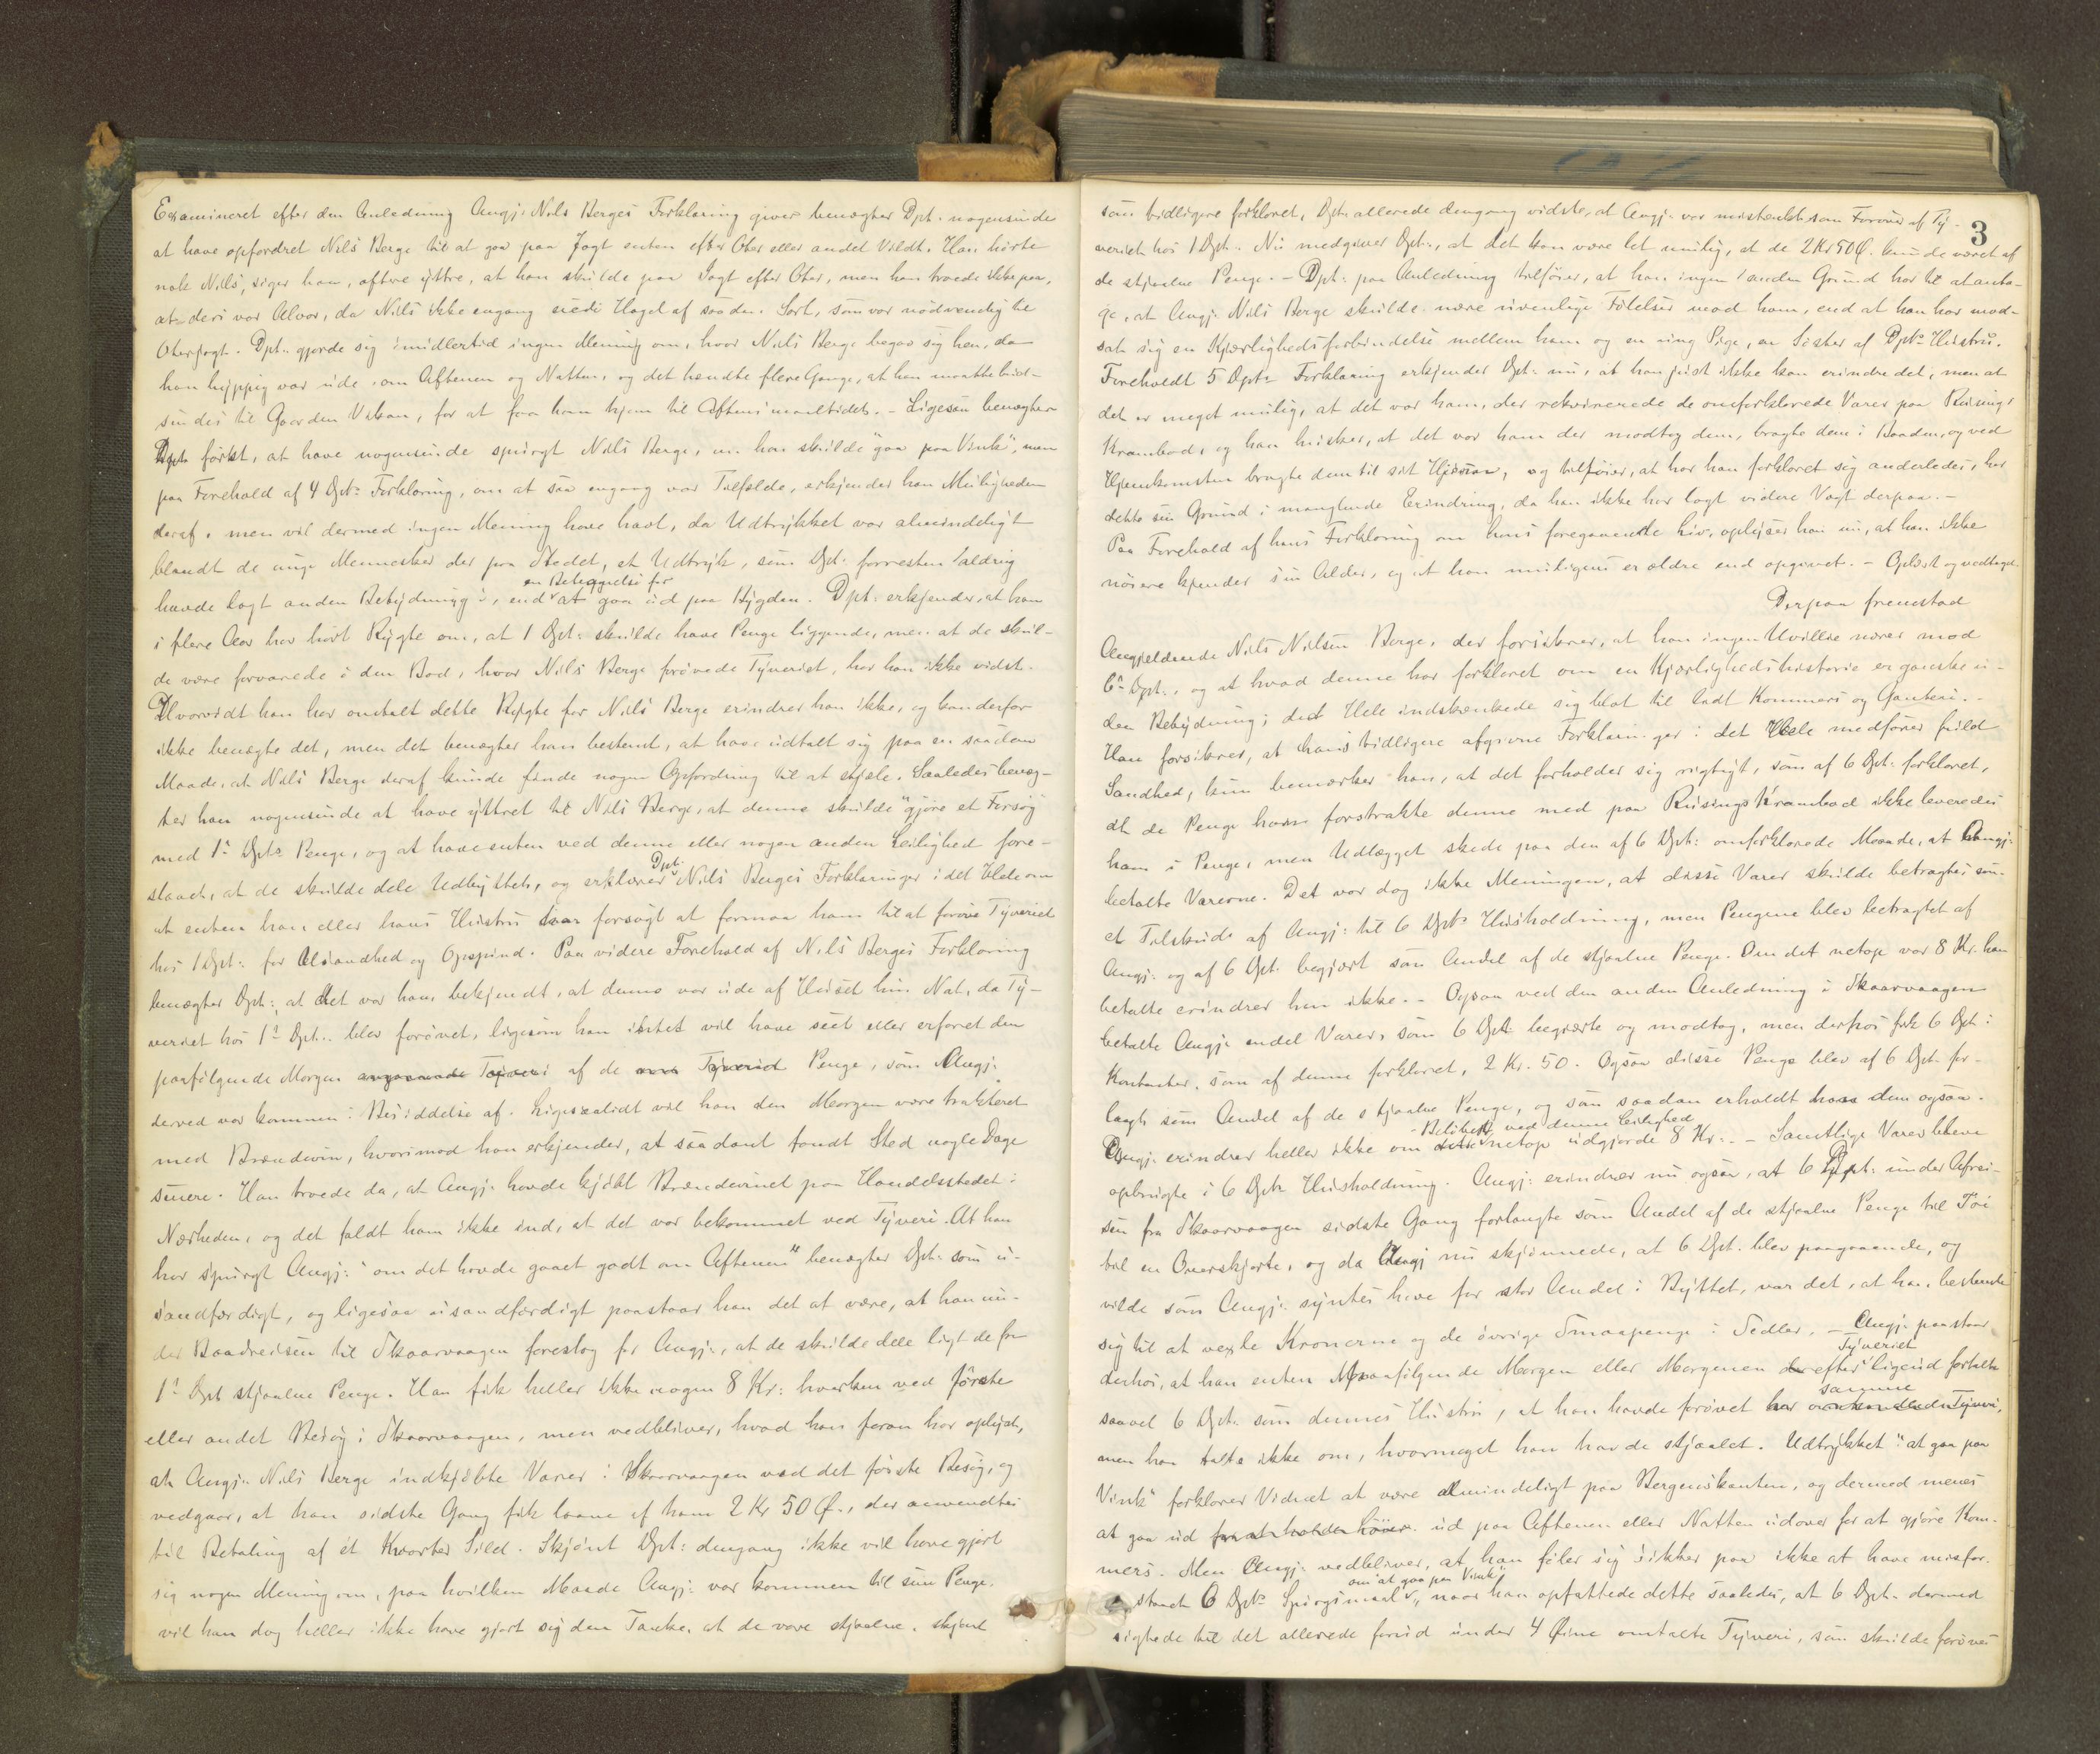 Examineret efter den Anledning Angj: Nils Berges Forklaring giver benægter Dpt. nogensinde
at have opfordret Nils Berge til at gaa paa Jagt enten efter Oter eller andet Vildt. Han hørte
nok Nils, siger han, oftere yttre, at han skulde paa Jagt efter Oter, men han troede ikke paa,
at deri var Alvor, da Nils ikke engang eiede Hagel af saadan Sort, som var nødvendig til
Oterjagt. Dpt. gjorde sig imidlertid ingen Mening om, hvor Nils Berge begav sig hen, da
han hyppig var ude om Aftenen og Natten, og det hændte flere Gange, at han maatte bud-
sendes til Gaarden Vikan, for at faa ham hjem til Aftensmaaltidet. - Ligesaa benægter
Dpt. først, at have nogensinde spurgt Nils Berge, om han skulde "gaa paa Vink", men
paa Forehold af 4 Dpt: Forklaring, om at saa engang var Tilfælde, erkjender han Muligheden
deraf, men vil dermed ingen Mening have havt, da Udtrykket var almindeligt
blandt de unge Mennesker der paa Stedet, et Udtryk, som Dpt. forresten aldrig
en Betegnelse for
havde lagt anden Betydning i, end at gaa ud paa Bygden. Dpt: erkjender, at han
i flere Aar har hørt Rygte om, at 1 Dpt: skulde have Penge liggende, men at de skul-
de være forvarede i den Bod, hvor Nils Berge prøvede Tyveriet, har han ikke vidst.
Hvorvidt han har omtalt dette Rygte for Nils Berge erindrer han ikke, og kan derfor
ikke benægte det, men det benægter han bestemt, at have udtalt sig paa en saadan
Maade, at Nils Berge deraf kunde finde nogen Opfordring til at stjæle. Saaledes benæg-
ter han nogensinde at have yttret til Nils Berge, at denne skulde "gjøre et Forsøg"
med 1ª Dpts Penge, og at have enten ved denne eller nogen anden Leilighed fore-
Dpt.
slaaet, at de skulde dele Udbyttet, og erklærer Nils Berges Forklaringer i det Hele om
at enten han eller hans Hustru har forsøgt at formaa ham til at forøve Tyveriet
hos 1 Dpt: for Usandhed og Opspind. Paa videre Forehold af Nils Berges Forklaring
benægter Dpt:, at det var ham bekjendt, at denne var ude af Huset hin Nat, da Ty-
veriet hos 1ª Dpt. blev forøvet, ligesom han intet vil have seet eller erfaret den
paafølgende Morgen angaaende Tyveri af de ved Tyveriet Penge, som Angj:
derved var kommen i Besiddelse af. Ligesaalidt vil han den Morgen være trakteret
med Brændevin, hvorimod han erkjender, at saadant fandt Sted nogle Dage
senere. Han troede da, at Angj: havde kjøbt Brændevinet paa Handelsstedet i
Nærheden, og det faldt ham ikke ind, at det var bekommet ved Tyveri. At han
har spurgt Angj: "om det havde gaaet godt om Aftenen" benægter Dpt: som u-
sandfærdigt, og ligesaa usandfærdigt paastaar han det at være, at han un-
der Baadreisen til Skaarvaagen foreslog for Angj:, at de skulde dele ligt de fra
1ª Dpt stjaalne Penge. Han fik heller ikke nogen 8 Kr: hverken ved første
eller andet Besøg i Skaarvaagen, men vedbliver, hvad han foran har oplyst,
at Angj: Nils Berge indkjøbte Varer i Skaarvaagen ved det første Besøg, og
vedgaar, at han sidste Gang fik laane af ham 2 Kr 50 Ø., der anvendtes
til Betaling af ét Kvarter Sild. Skjønt Dpt: dengang ikke vil have gjort
sig nogen Mening om, paa hvilken Maade Angj: var kommen til sine Penge,
vil han dog heller ikke have gjort sig den Tanke, at de vare stjaalne, skjønt
3
som tidligere forklaret, Dpt. allerede dengang vidste, at Angj: var mistænkt som Forøver af Ty-
veriet hos 1 Dpt. Nu medgiver Dpt:, at det kan være let mulig, at de 2 Kr 50 Ø. kunde været af
de stjaalne Penge. - Dpt: paa Anledning tilføier, at han ingen anden Grund har til at anta-
ge, at Angj: Nils Berge skulde nære uvenlige Følelser mod ham, end at han har mod-
sat sig en Kjærlighedsforbindelse mellem ham og en ung Pige, en Søster af Dpts Hustru.
Foreholdt 5 Dpts Forklaring erkjender Dpt: nu, at han just ikke kan erindre det, men at
det er meget mulig, at det var ham, der rekvirerede de omforklarede Varer paa Rusings
Krambod, og han husker, at det var ham der modtog dem, bragte dem i Baaden, og ved
Hjemkomsten bragte dem til sit Hjem, og tilføier, at har han forklaret sig anderledes, har
dette sin Grund i manglende Erindring, da han ikke har lagt videre Vægt derpaa. -
Paa Forehold af hans Forklaring om hans foregaaende Liv, oplyser han nu, at han ikke
nøiere kjender sin Alder, og at han muligens er ældre end opgivet. - Oplæst og vedtaget.
Derpaa fremstod
Angjeldende Nils Nilsen Berge, der forsikrer, at han ingen Uvillie nærer mod
6ª Dpt., og at hvad denne har forklaret om en Kjærlighedshistorie er ganske u-
den Betydning; det Hele indskrænkede sig blot til lidt Kommers og Ganteri. -
Han forsikrer, at hans tidligere afgivne Forklaringer i det Hele medfører fuld
Sandhed, kun bemærker han, at det forholder sig rigtigt, som af 6 Dpt: forklaret,
at de Penge han forstrakte denne med paa Rusings Krambod ikke leveredes
ham i Penge, men Udlægget skede paa den af 6 Dpt: omforklarede Maade, at Angj:
betalte Varerne. Det var dog ikke Meningen, at disse Varer skulde betragtes som
et Tilskud af Angj: til 6 Dpts Husholdning, men Pengene blev betragtet af
Angj: og af 6 Dpt. begjært som Andel af de stjaalne Penge. Om det netop var 8 Kr. han
betalte erindrer han ikke. - Ogsaa ved den anden Anledning i Skaarvaagen
betalte Angj: endel Varer, som 6 Dpt. begjærte og modtog, men derhos fik 6 Dpt:
Kontanter, som af denne forklaret, 2 Kr. 50. Ogsaa disse Penge blev af 6 Dpt. for-
langt som Andel af de stjaalne Penge, og som saadan erholdt han dem ogsaa.
Beløbet ved denne Leilighed
Angj: erindrer heller ikke om dette netop udgjorde 8 Kr: - Samtlige Varer bleve
opbrugte i 6 Dpts Husholdning. Angj: erindrer nu ogsaa, at 6 Dpt: under Afrei-
sen fra Skaarvaagen sidste Gang forlangte som Andel af de stjaalne Penge til Tøi
til en Overskjorte, og da Angj nu skjønnede, at 6 Dpt. blev paagaaende, og
vilde som Angj: syntes have for stor Andel i Byttet, var det, at han bestemte
sig til at vexle Kronerne og de øvrige Smaapenge i Sedler. - Angj: paastaar
Tyveriet
derhos, at han enten paafølgende Morgen eller Morgenen efter ligeud fortalte
samme
saavel 6 Dpt. som dennes Hustru, at han havde forøvet Tyveri,
men han talte ikke om, hvormeget han havde stjaalet. Udtrykket "at gaa paa
Vink" forklarer Vidnet at være almindeligt paa Bergenskanten, og dermed menes
at gaa ud ud paa Aftenen eller Natten udover for at gjøre Kom-
mers. Men Angj: vedbliver, at han føler sig sikker paa ikke at have misfor-
om "at gaa paa Vink"
staaet 6 Dpts Spørgsmaal, naar han opfattede dette saaledes, at 6 Dpt. dermed
sigtede til det allerede forud under 4 Øine omtalte Tyveri, som skulde forøves